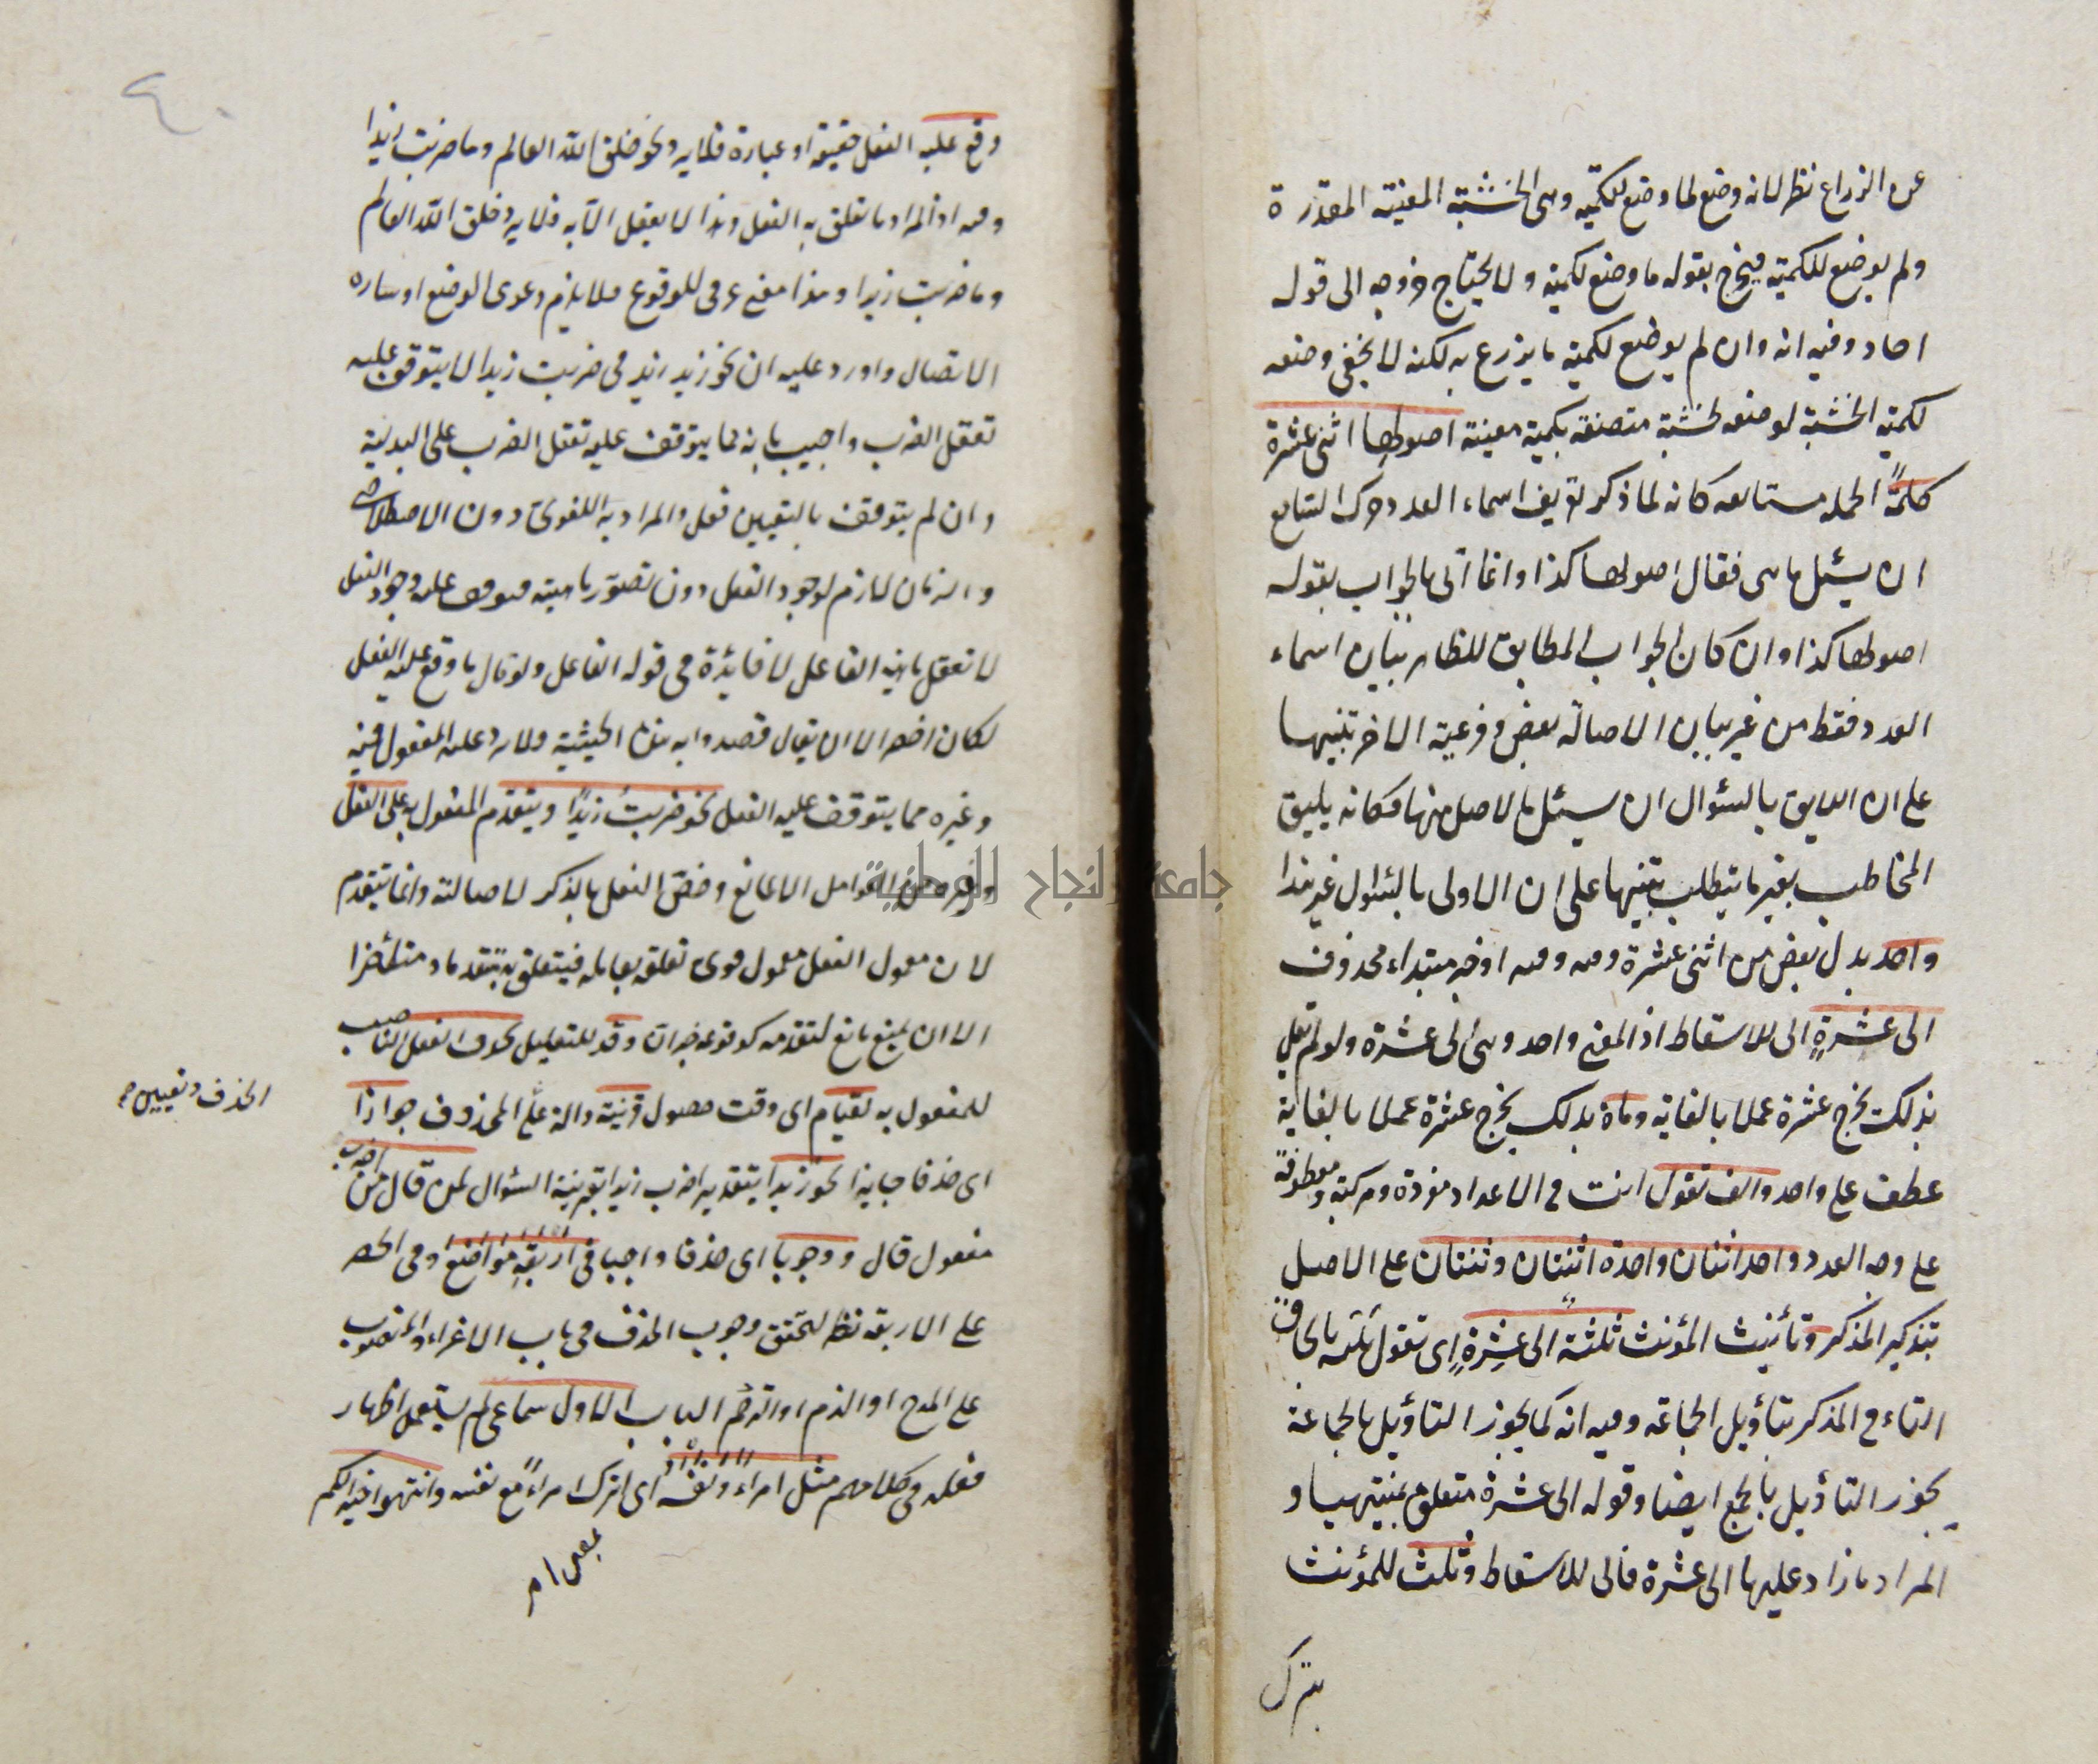 عن الزراع نظر لانه وضع لما وضع للكمية وهى الخشبة المعينة المقدرة
ولم يوضع للكمية فيخرج بقوله ما وضع لكمية ولا يحتاج خروجه الى قوله
احاد وفيه انه وان لم يوضع لكمية ما يزرع به لكنه لا يخفى وضعه
لكمية الخشبة لوضعه لخشبة متصفة بكمية معينة اصولها اثنى عشرة
كلمةً الجملة مستانفة كانه لما ذكر تعريف اسماء العدد حرك السامع
ان يسئل ما هى فقال اصولها كذا وانما اتى بالجواب بقوله
اصولها كذا وان كان الجواب المطابق للظاهر بيان اسماء
العدد فقط من غير بيان الاصالة بعض وفرعية الاخر تنبيها
على ان اللايق بالسئوال ان يسئل بالاصل منها فكانه يليق
المخاطب بغير ما يتطلب تنبيها على ان الاولى بالسئوال غير هذا
واحد بدل بعض من اثنى عشرة ومه ومه او خبر مبتداء محذوف
الى عشرةٍ الى للاسقاط اذ المعنى واحد وهى الى عشرة ولو لم تقل
بذلك يخرج عشرة عملا بالغاية وماة بذلك يخرج عشرة عملا بالغاية
عطف على واحد والف تقول انت فى الاعداد مفردة ومركبة ومعطوفة
على وجه العدد واحد اثنان واحدة اثنتان وثنتان على الاصل
بتذكير المذكر وتأنيث المؤنث ثلثةً الى عشرةٍ اى تقول ثلثه بالحاق
التاء فى المذكر بتأويل الجماعة وفيه انه كما يجوز التاؤيل بالجماعة
يجوز التاؤيل بالجمع ايضا وقوله الى عشرة متعلق بمنتهيا و
المراد ما زاد عليها الى عشرة فالى للاسقاط وثلث للمؤنث
بترك
٤٠
وقع عليه الفعل حقيقة او عبارة فلا يرد نحو خلق الله العالم وما ضربت زيدا
ومه اذ المراد ما تعلق به الفعل وهذا لا يعقل الا به فلا يرد خلق الله العالم
وما ضربت زيدا وهذا معنى عرفى للوقوع فلا يلزم دعوى الوضع او
الاتصال واورد عليه ان نحو زيد زيد فى ضربت زيدا لا يتوقف عليه
تعقل الضرب واجيب بانه مما يتوقف عليه تعقل الضرب على البدلية
وان لم يتوقف بالتعيين فعل والمراد به اللغوى دون الاصطلاحى
والزمان لازم لوجود الفعل دون تصور ماهيته فتوقف عليه وجود الفعل
لا تعقل ماهية الفاعل لا فائدة فى قوله الفاعل ولو قال ما وقع عليه الفعل
لكان اخصر الا ان يقال قصدوا به هذه الحيثية ولا يرد عليه المفعول فيه
وغيره مما يتوقف عليه الفعل نحو ضربتُ زيدًا ويتقدم المفعول به على الفعل
وغيره من العوامل الا لمانع وخص الفعل بالذكر لاصالته وانما يتقدم
لان معمول الفعل معمول قوى تعلقه بعامله فيتعلق به متقدما ومتأخرا
الا ان يمنع مانع لتقدمه كوقوعه خبر ان وقد للتقليل يحذف الفعل الناصب
للمفعول به لقيام اى وقت حصول قرينة دالة على المحذوف جوازًا
الحذف وتعيين
اى حذفا جايزا نحو زيدا بتقدير اضرب زيدا بقرينة السئوال لمن قال من اضرب
مفعول قال ووجوبا اى حذفا واجبا فى اربعة مواضع وفى الحصر
على الاربعة نظر لتحقق وجوب الحذف فى باب الاغراء والمنصوب
على المدح او الذم او الترحم الباب الاول سماعى لم يستعمل اظهار
فعله فى كلامهم مثل امراءً ونفسه اى اترك امراءً مع نفسه وانتهوا خيرا لكم